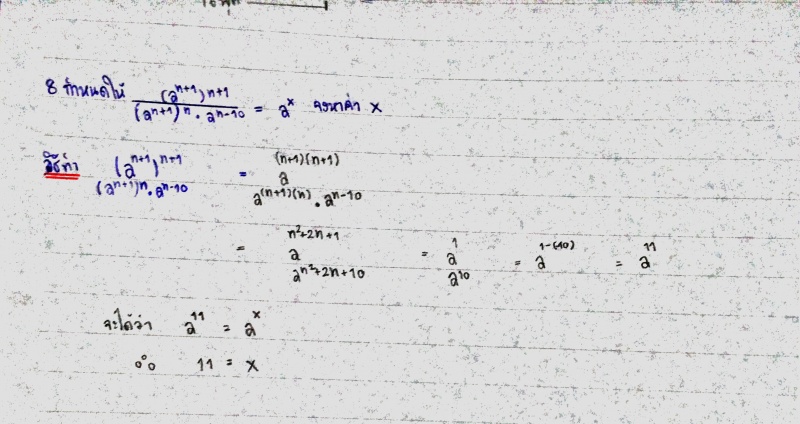 8 กำหนดให้ (aⁿ⁺¹)ⁿ⁺¹ / (aⁿ⁺¹)ⁿ · aⁿ⁻¹⁰ = aˣ จงหาค่า x
วิธีทำ (aⁿ⁺¹)ⁿ⁺¹ / (aⁿ⁺¹)ⁿ · aⁿ⁻¹⁰ = a⁽ⁿ⁺¹⁾⁽ⁿ⁺¹⁾ / a⁽ⁿ⁺¹⁾⁽ⁿ⁾ · aⁿ⁻¹⁰
= a^(n²+2n+1) / a^(n²+2n+10) = a¹ / a¹⁰ = a^(1-(-10)) = a¹¹
จะได้ว่า a¹¹ = aˣ
∴ 11 = x